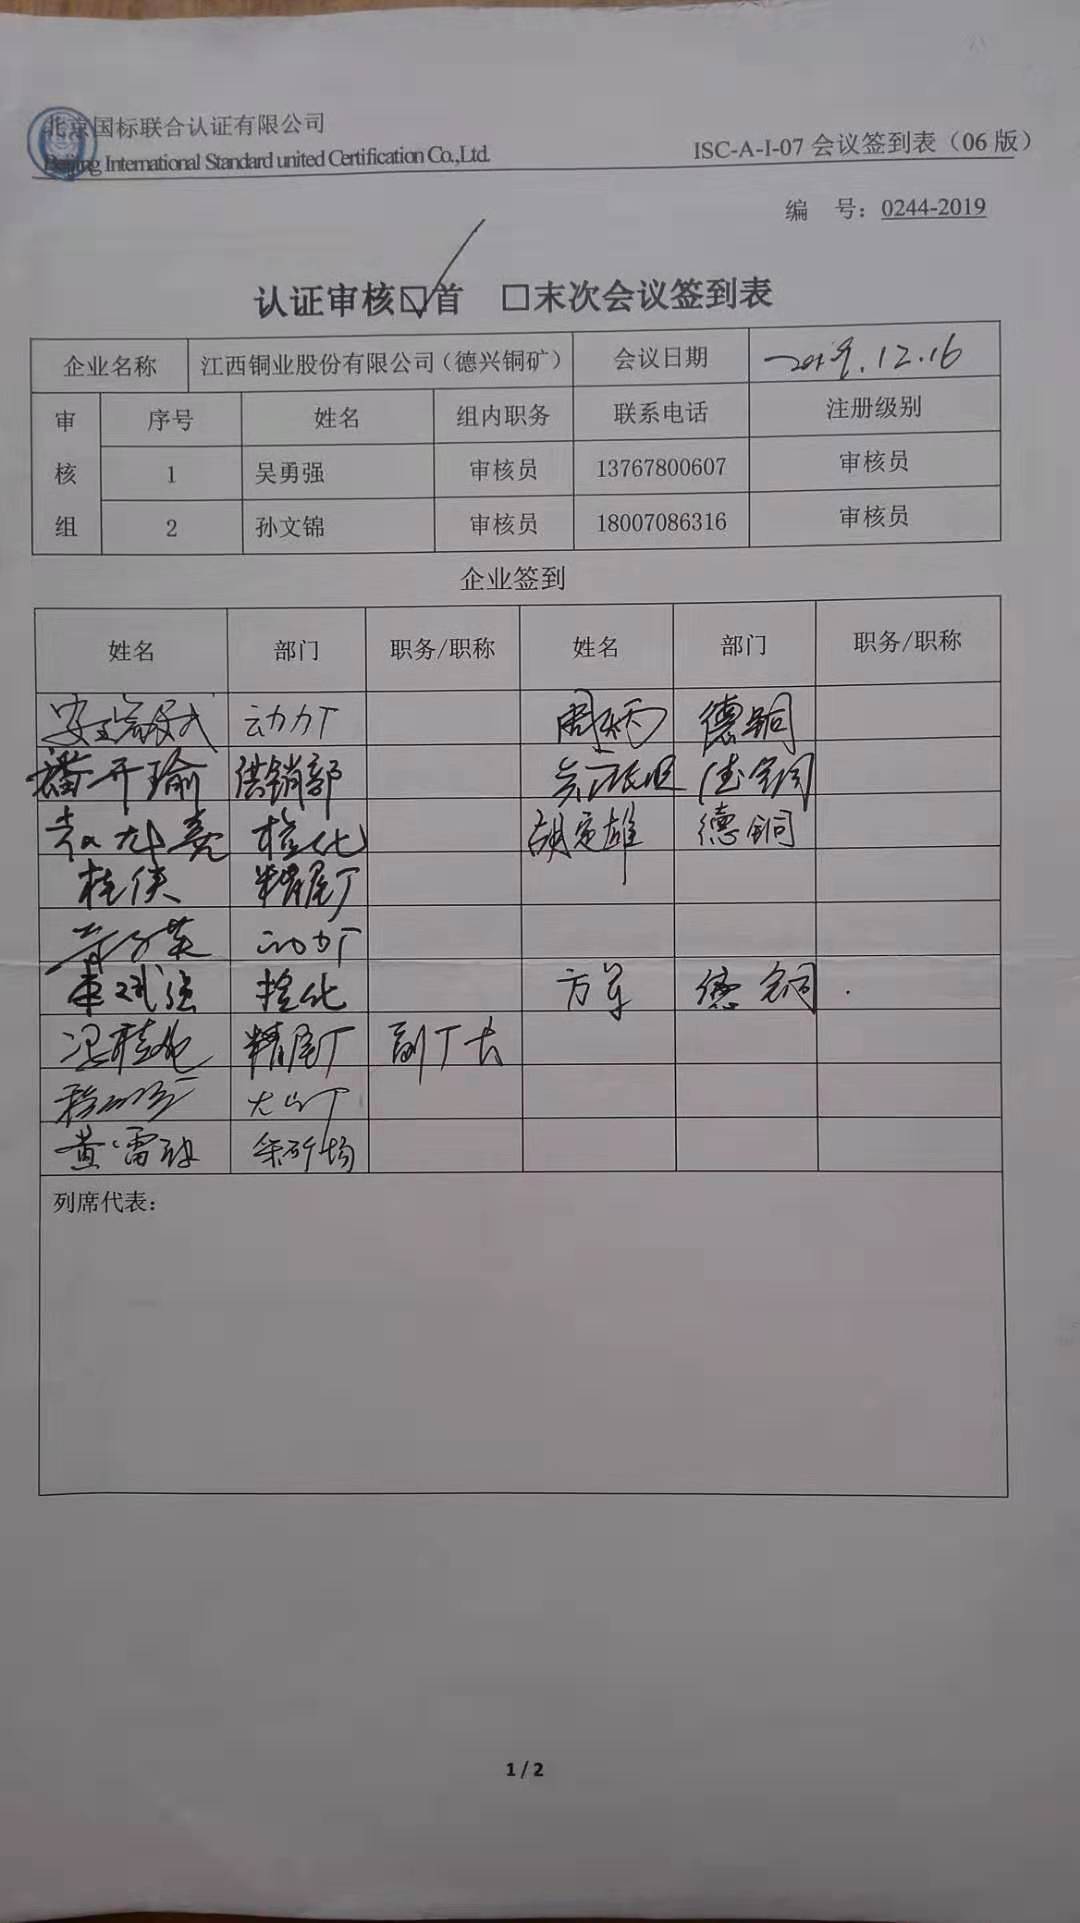 北京国标联合认证有限公司
Beijing International Standard united Certification Co.,Ltd.
ISC-A-I-07 会议签到表（06 版）
编 号：0244-2019
认证审核☑首 □末次会议签到表
企业名称 江西铜业股份有限公司（德兴铜矿） 会议日期 2019.12.16
审核组 序号 姓名 组内职务 联系电话 注册级别
1 吴勇强 审核员 13767800607 审核员
2 孙文锦 审核员 18007086316 审核员
企业签到
姓名 部门 职务/职称 姓名 部门 职务/职称
动力厂 德铜
潘开瑜 供销部 德铜
检化 胡定雄 德铜
桂侠 精尾厂
动力厂
检化 方军 德铜.
精尾厂 副厂长
大山厂
黄雷 采矿场
列席代表：
1 / 2